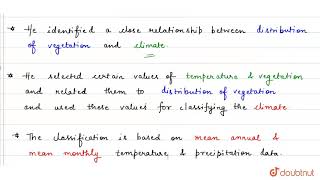 * He identified a close relationship between distribution
of vegetation and climate.
* He selected certain values of temperature & vegetation
and related them to distribution of vegetation
and used these values for classifying the climate
* The classification is based on mean annual &
mean monthly temperature & precipitation data.
doubtnut